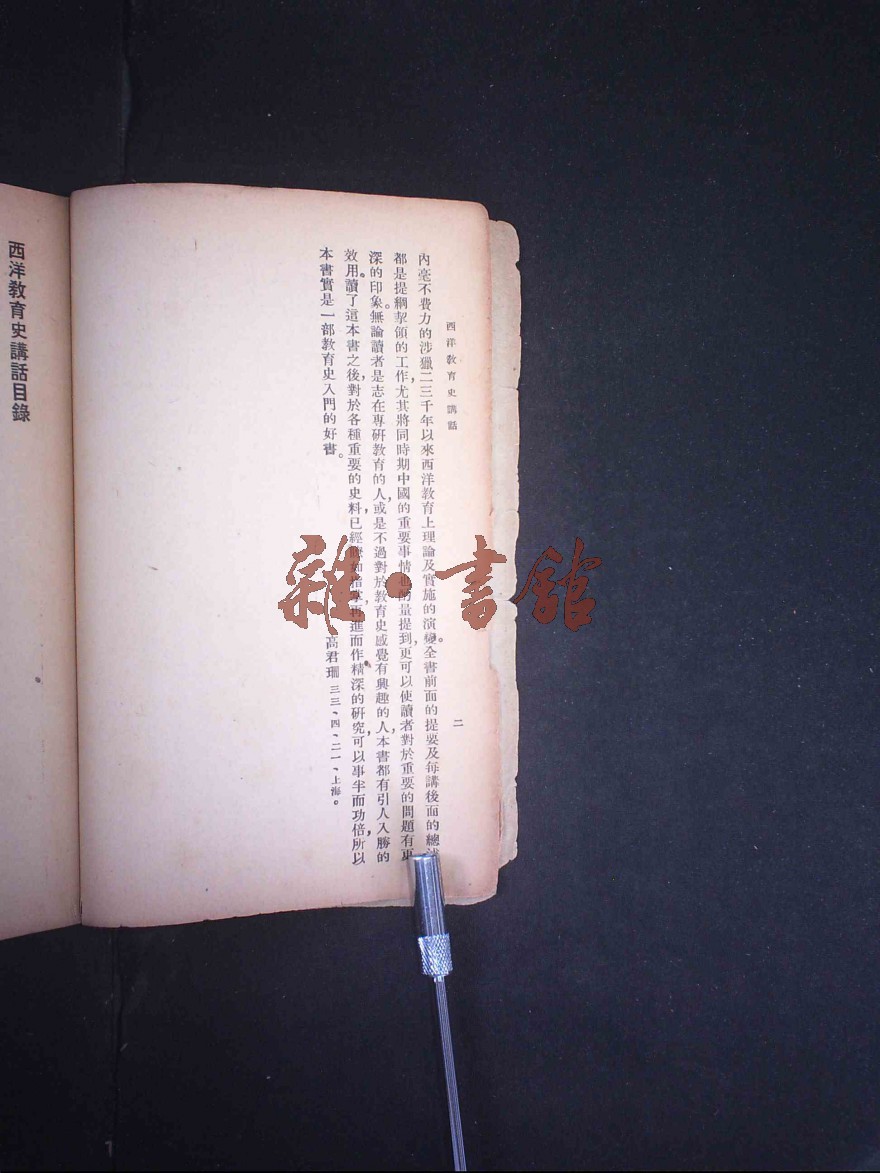 西洋教育史講話
二
內毫不費力的涉獵二三千年以來西洋教育上理論及實施的演變。全書前面的提要及每講後面的總
都是提綱挈領的工作，尤其將同時期中國的重要事情也的量提到，更可以使讀者對於重要的問題有更
深的印象。無論讀者是志在專研教育的人，或是不過對於教育史感覺有興趣的人，本書都有引人入勝的
效用。讀了這本書之後，對於各種重要的史料已經瞭如指掌，再進而作精深的研究，可以事半而功倍，所以
本書實是一部教育史入門的好書。
高君珊 三三、四、二一、上海。
西洋教育史講話目錄
雜·書館